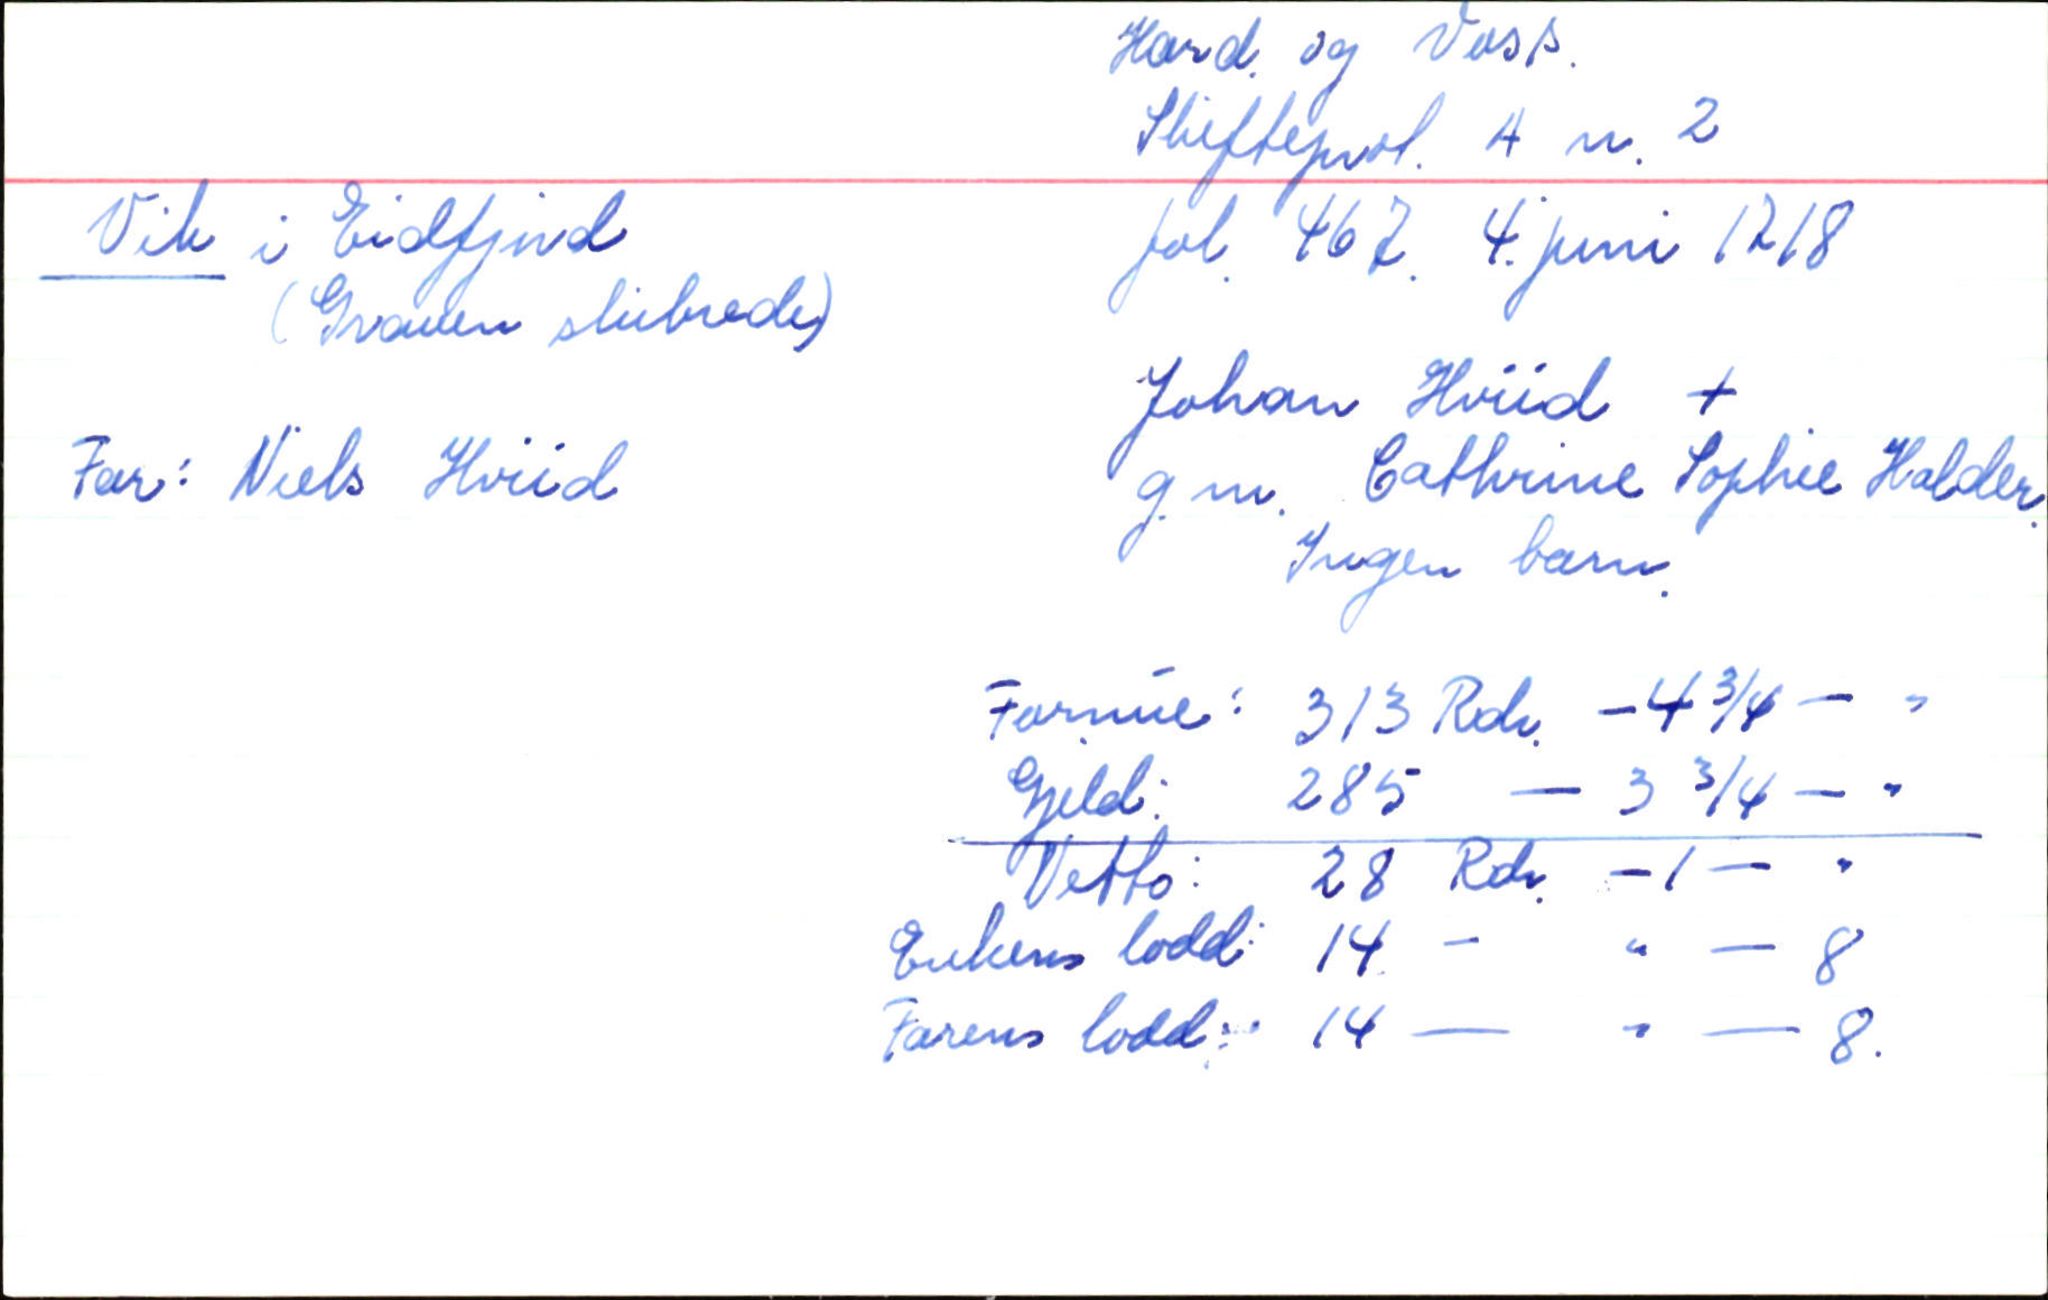 Hard. og Voss.
Skifteprot. A n. 2
Vik i Eidfjord
fol. 467. 4. juni 1718
(Graven skibrede)
Johan Hviid +
Far: Niels Hviid
g.m. Cathrine Sophie Halder.
Ingen barn.
Formue: 313 Rdr. - 4 3/4 - "
Gjeld: 285 - 3 3/4 - "
Netto: 28 Rdr. - 1 - "
Enkens lodd: 14 - " - 8
Farens lodd: 14 - " - 8.